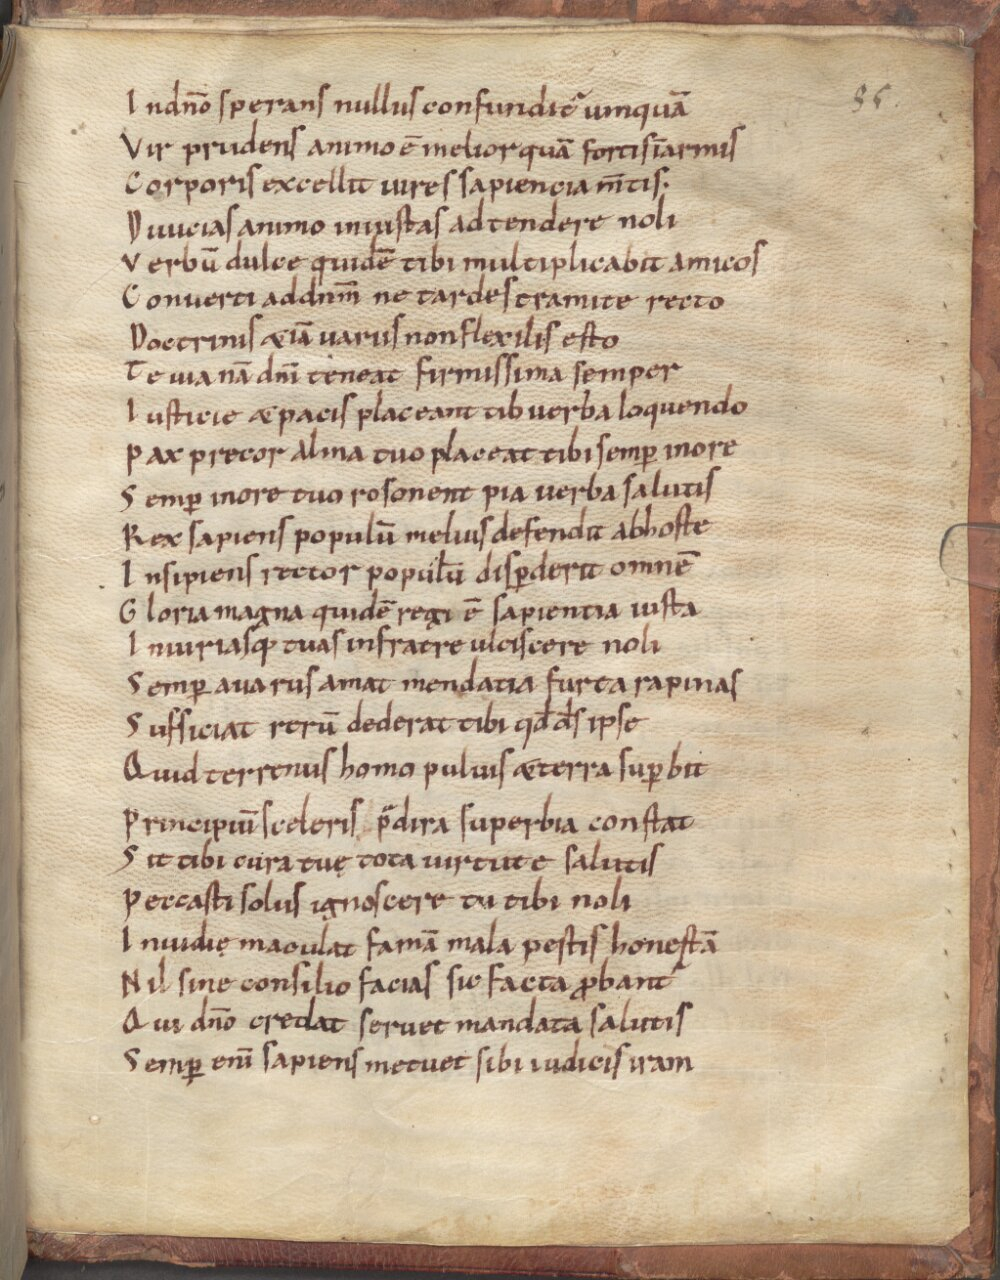 86.
In dnō sperans nullus confundit᷑ umquā
Vir prudens animo ē melior quā fortis ī armis
Corporis excellit uires sapiencia m̄tis.
Diuicias animo iniustas adtendere noli
Verbū dulce quidē tibi multiplicabit amicos
Conuerti ad dnm̄ ne tardes tramite recto
Doctrinis & iā uariis non flexilis esto
Te uia nā dnī teneat firmissima semper
Iusticie & pacis placeant tib uerba loquendo
Pax precor alma tuo placeat tibi semꝑ in ore
Semꝑ in ore tuo rosonent pia uerba salutis
Rex sapiens populū melius defendit ab hoste
Insipiens rector populū disꝑderit omnē
Gloria magna quidē regi ē sapientia iusta
Iniuriasq; tuas in fratre ulciscere noli
Semꝑ auarus amat mendatia furta rapinas
Sufficiat rerū dederat tibi qđ ds̄ ipse
Quid terrenus homo puluis & terra suꝑbit
Principiū sceleris p̄dira superbia constat
Sit tibi cura tuę tota uirtute salutis
Peccasti solus ignoscere tu tibi noli
Inuidię maculat famā mala pestis honestā
Nil sine consilio facias sic facta ꝓbant᷑
Qui dnō credat seruet mandata salutis
Semꝑ enī sapiens metuet sibi iudicis iram